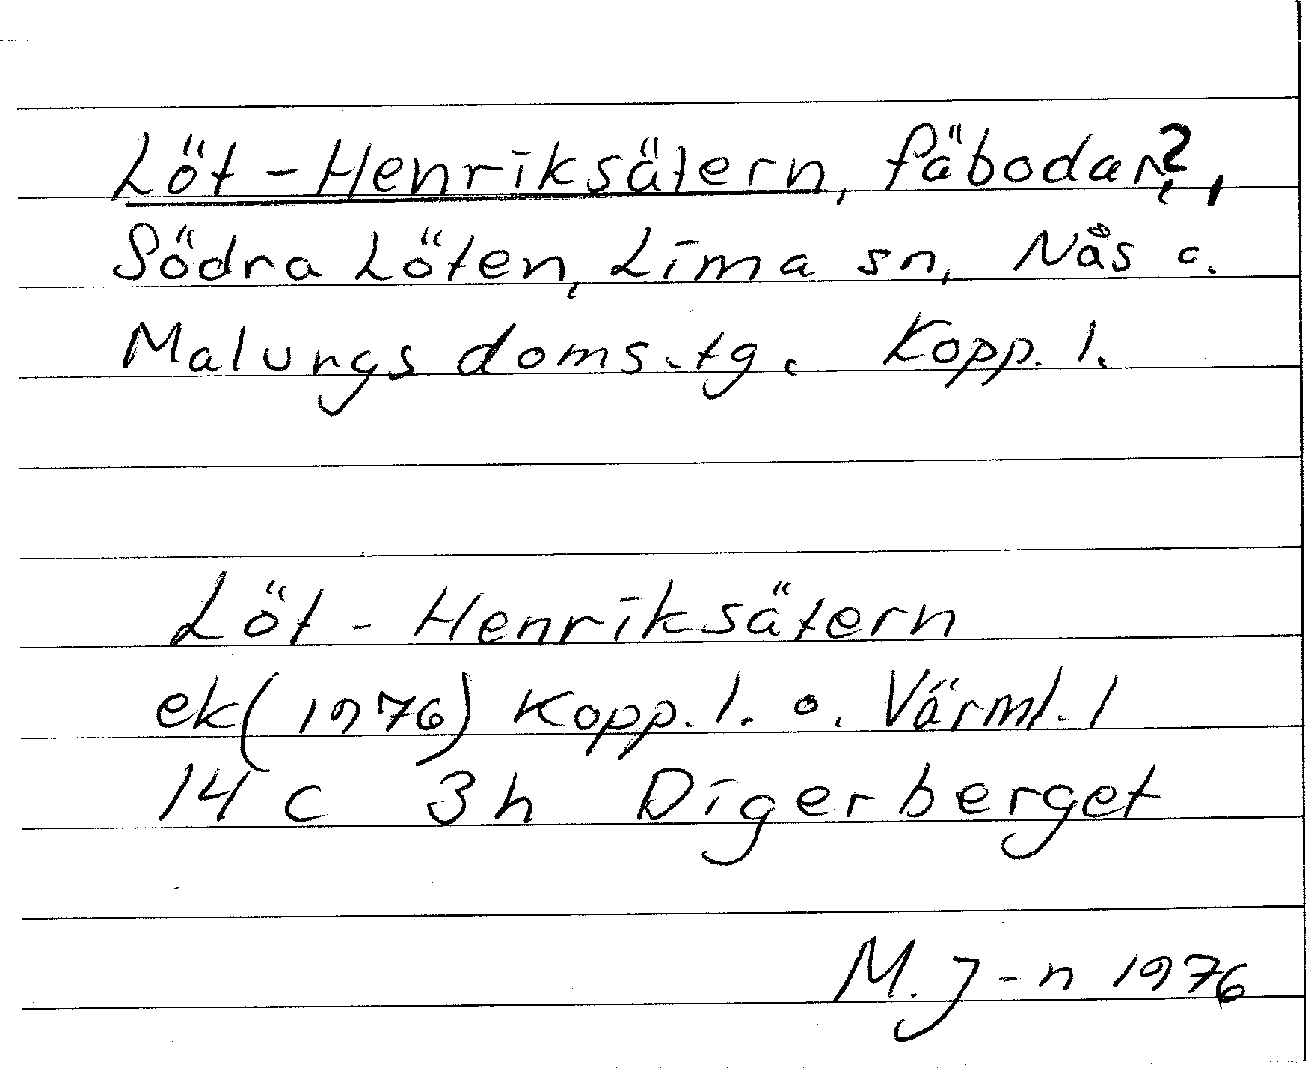 Löt-Henriksätern, fäbodar?,
Södra Löten, Lima sn, Nås o.
Malungs doms.tg. Kopp. l.
Löt-Henriksätern
ek(1976) Kopp. l. o. Värml. l
14 c 3h Digerberget
M. J-n 1976